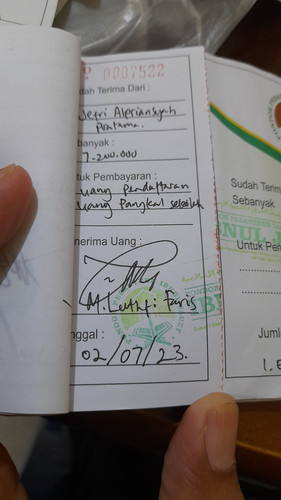 0007522
dah Terima Dari :
Jefri Alpriansyah
Pratama.
banyak :
7.200.000
tuk Pembayaran :
uang pendaftaran
uang pangkal sekolah
nerima Uang :
M. Luthfi Faris
nggal :
02/07/23.
Sudah Terim
Sebanyak
Untuk Pen
Juml